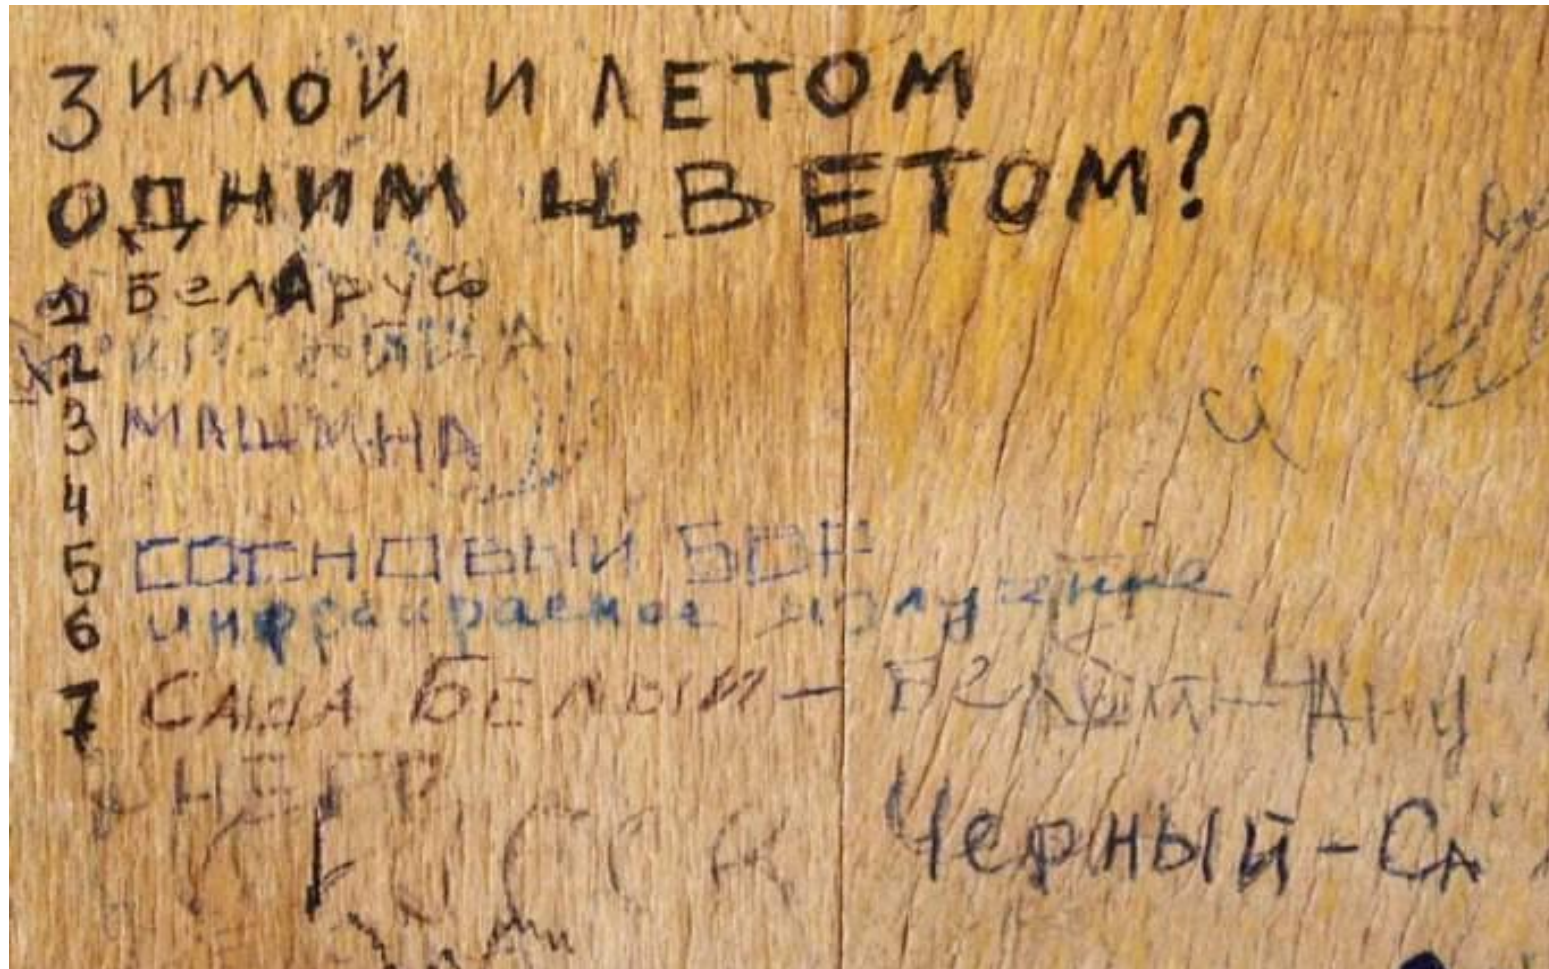 Зимой и ЛЕТОМ
ОДНИМ ЦВЕТОМ?
1 БелАрусь
2
3 МАШИНА
4
5 СОСНОВЫЙ БОР
6 инфракрасное излучение
7 САША БЕЛЫЙ –
НЕГР
Черный – СА